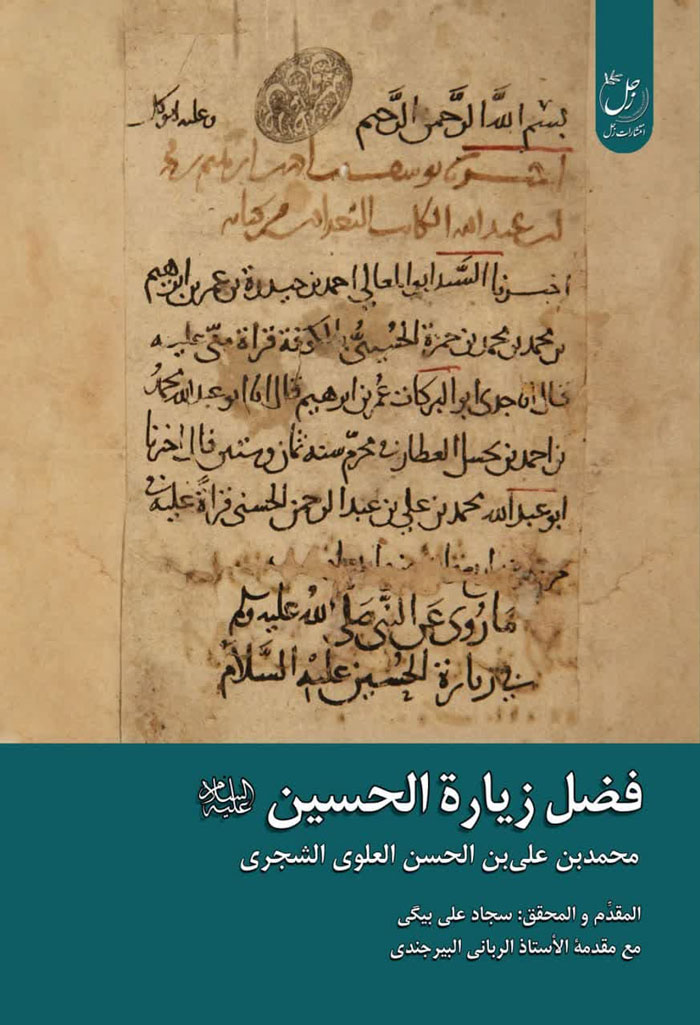 زحل
انتشارات زحل
بسم الله الرَّحمن الرَّحيم
اخبرنا السَّيد ابو المعالي احمد بن حيدرة بن عمر بن ابرهيم
بن محمد بن محمد بن حمزة الحُسيني بالكوفة قراة منّي عليه
قال انا جدي ابو البركات عُمر بن ابرهيم قال انا ابو عبد الله محمدُ
بن احمد بن العطار في محرّم سنه ثمان وستين قال اخبرنا
ابو عبد الله محمد بن علي بن عبد الرحمن الحسني قراةً عليه في
مَا رُوِى عَن النَّبي صَلَّى اللهُ عليه وسلم
في زيارة الحُسين عليه السَّلامُ
فضل زيارة الحسين عليه السلام
محمدبن علی‌بن الحسن العلوی الشجری
المقدِّم و المحقق: سجاد علی بیگی
مع مقدمهٔ الأستاذ الربانی البیرجندی